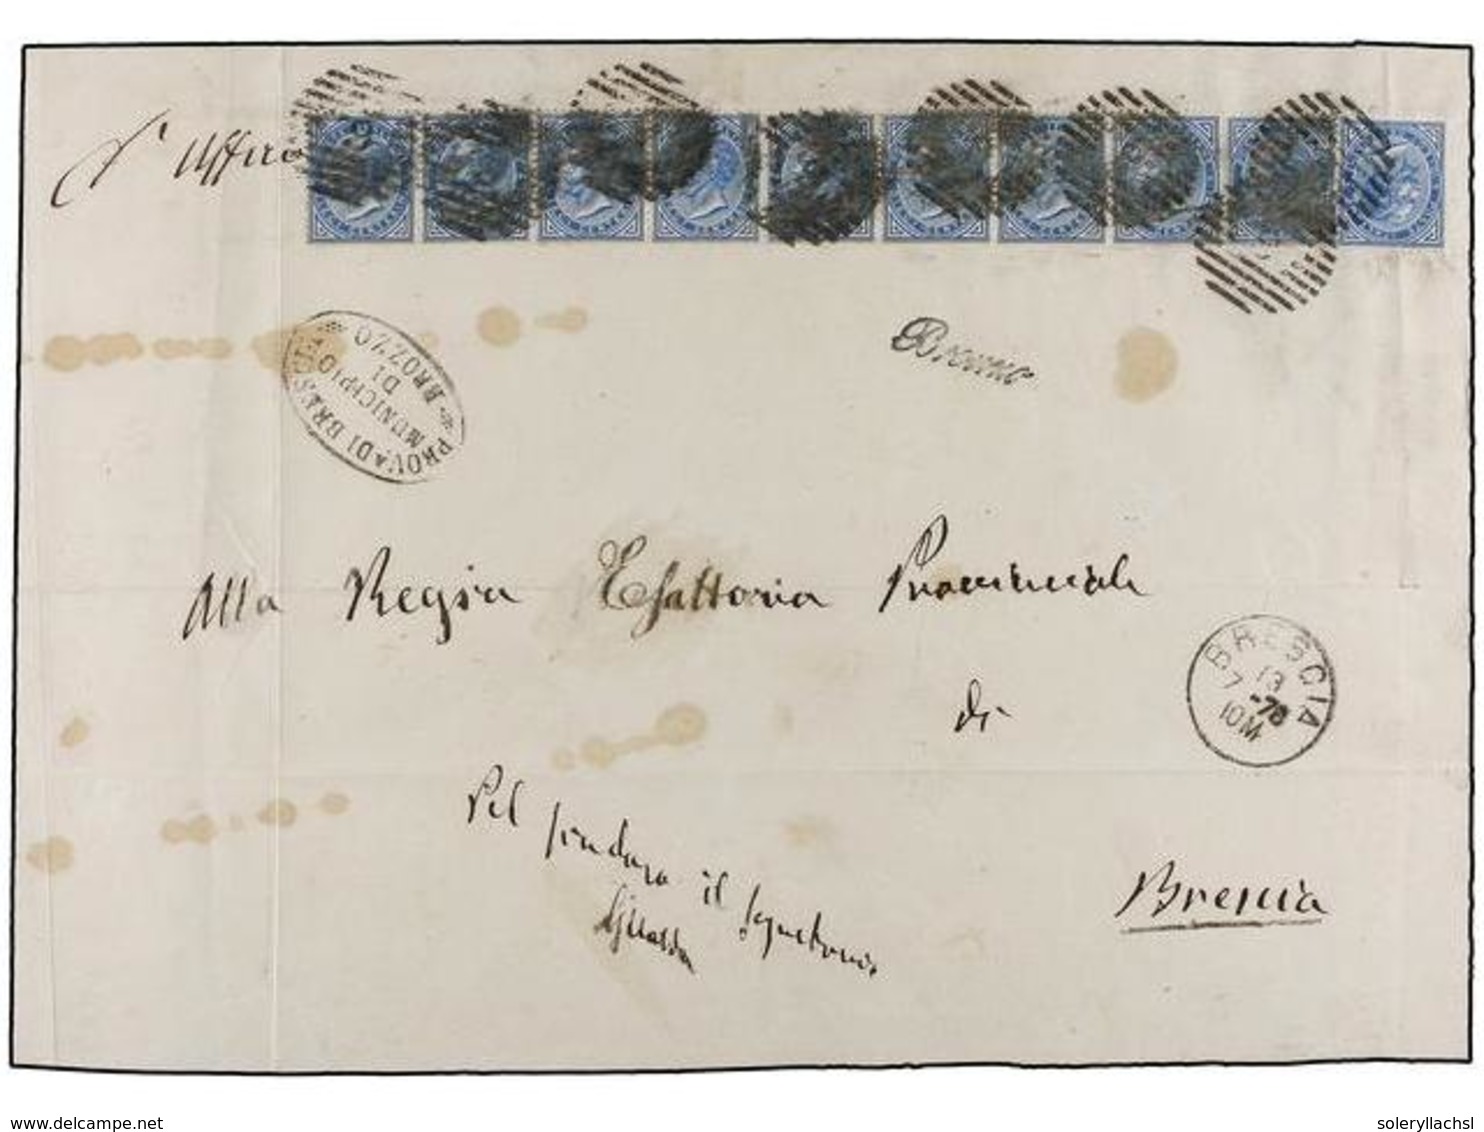 d' Uffizio
PROV.A DI BRESCIA
MUNICIPIO
DI
BROZZO
Alla Regia Esattoria Provinciale
di
BRESCIA
13
7 -78
10 M
Pel Sindaco il Segretario
Brescia
www.delcampe.net
soleryllachsl